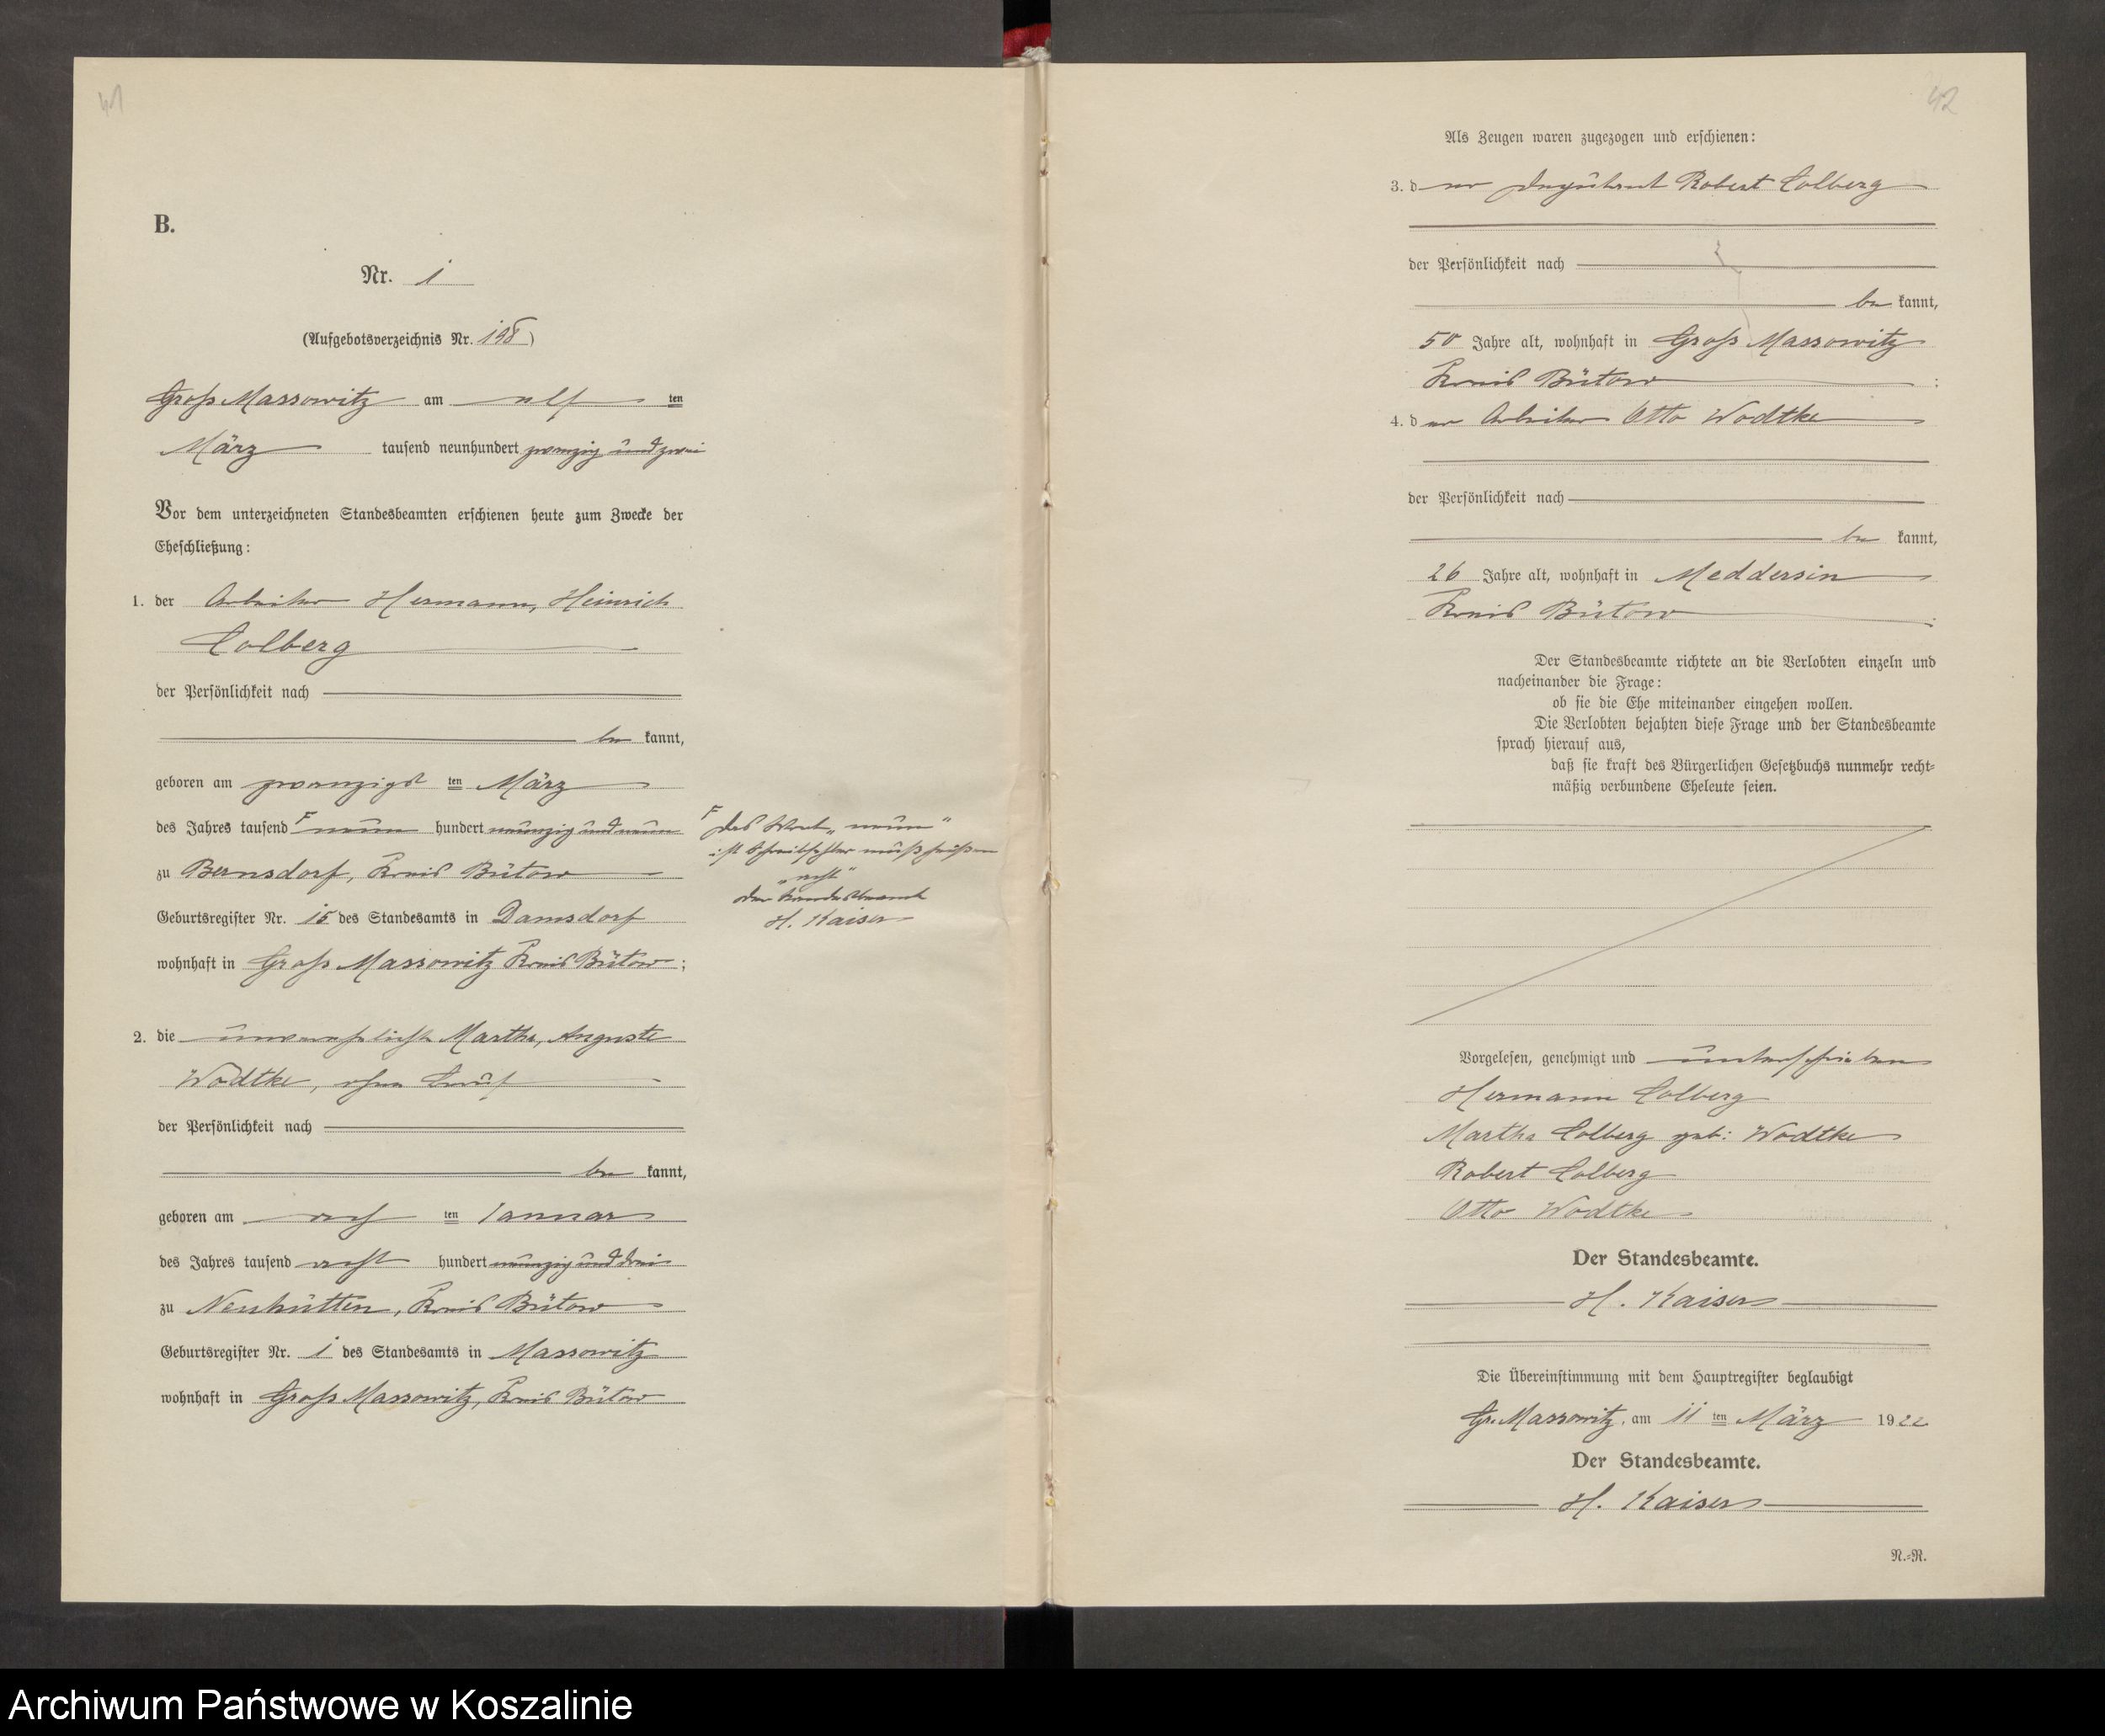 41
B.
Nr. 1
(Aufgebotsverzeichnis Nr. 198)
Groß Massowitz am elf ten
März tausend neunhundert zwanzig und zwei
Vor dem unterzeichneten Standesbeamten erschienen heute zum Zwecke der
Eheschließung:
1. der Arbeiter Hermann, Heinrich
Colberg
der Persönlichkeit nach
be kannt,
geboren am zwanzigst ten März
des Jahres tausend F neun hundert neunzig und neun
zu Bernsdorf, Kreis Bütow
Geburtsregister Nr. 15 des Standesamts in Damsdorf
wohnhaft in Groß Massowitz Kreis Bütow;
F das Wort „neun"
ist Schreibfehler muß heißen
„acht"
Der Standesbeamte
H. Kaiser
2. die unverehelichte Martha, Auguste
Wodtke, ohne Beruf
der Persönlichkeit nach
be kannt,
geboren am ach ten Januar
des Jahres tausend acht hundert neunzig und drei
zu Neuhütten, Kreis Bütow
Geburtsregister Nr. 1 des Standesamts in Massowitz
wohnhaft in Groß Massowitz, Kreis Bütow
42
Als Zeugen waren zugezogen und erschienen:
3. d er Deputant Robert Colberg
der Persönlichkeit nach
be kannt,
50 Jahre alt, wohnhaft in Groß Massowitz
Kreis Bütow ;
4. d er Arbeiter Otto Wodtke
der Persönlichkeit nach
be kannt,
26 Jahre alt, wohnhaft in Meddersin
Kreis Bütow .
Der Standesbeamte richtete an die Verlobten einzeln und
nacheinander die Frage:
ob sie die Ehe miteinander eingehen wollen.
Die Verlobten bejahten diese Frage und der Standesbeamte
sprach hierauf aus,
daß sie kraft des Bürgerlichen Gesetzbuchs nunmehr recht-
mäßig verbundene Eheleute seien.
Vorgelesen, genehmigt und unterschrieben
Hermann Colberg
Martha Colberg geb: Wodtke
Robert Colberg
Otto Wodtke
Der Standesbeamte.
H. Kaiser
Die Übereinstimmung mit dem Hauptregister beglaubigt
Gr. Massowitz, am 11 ten März 1922
Der Standesbeamte.
H. Kaiser
N.-R.
Archiwum Państwowe w Koszalinie